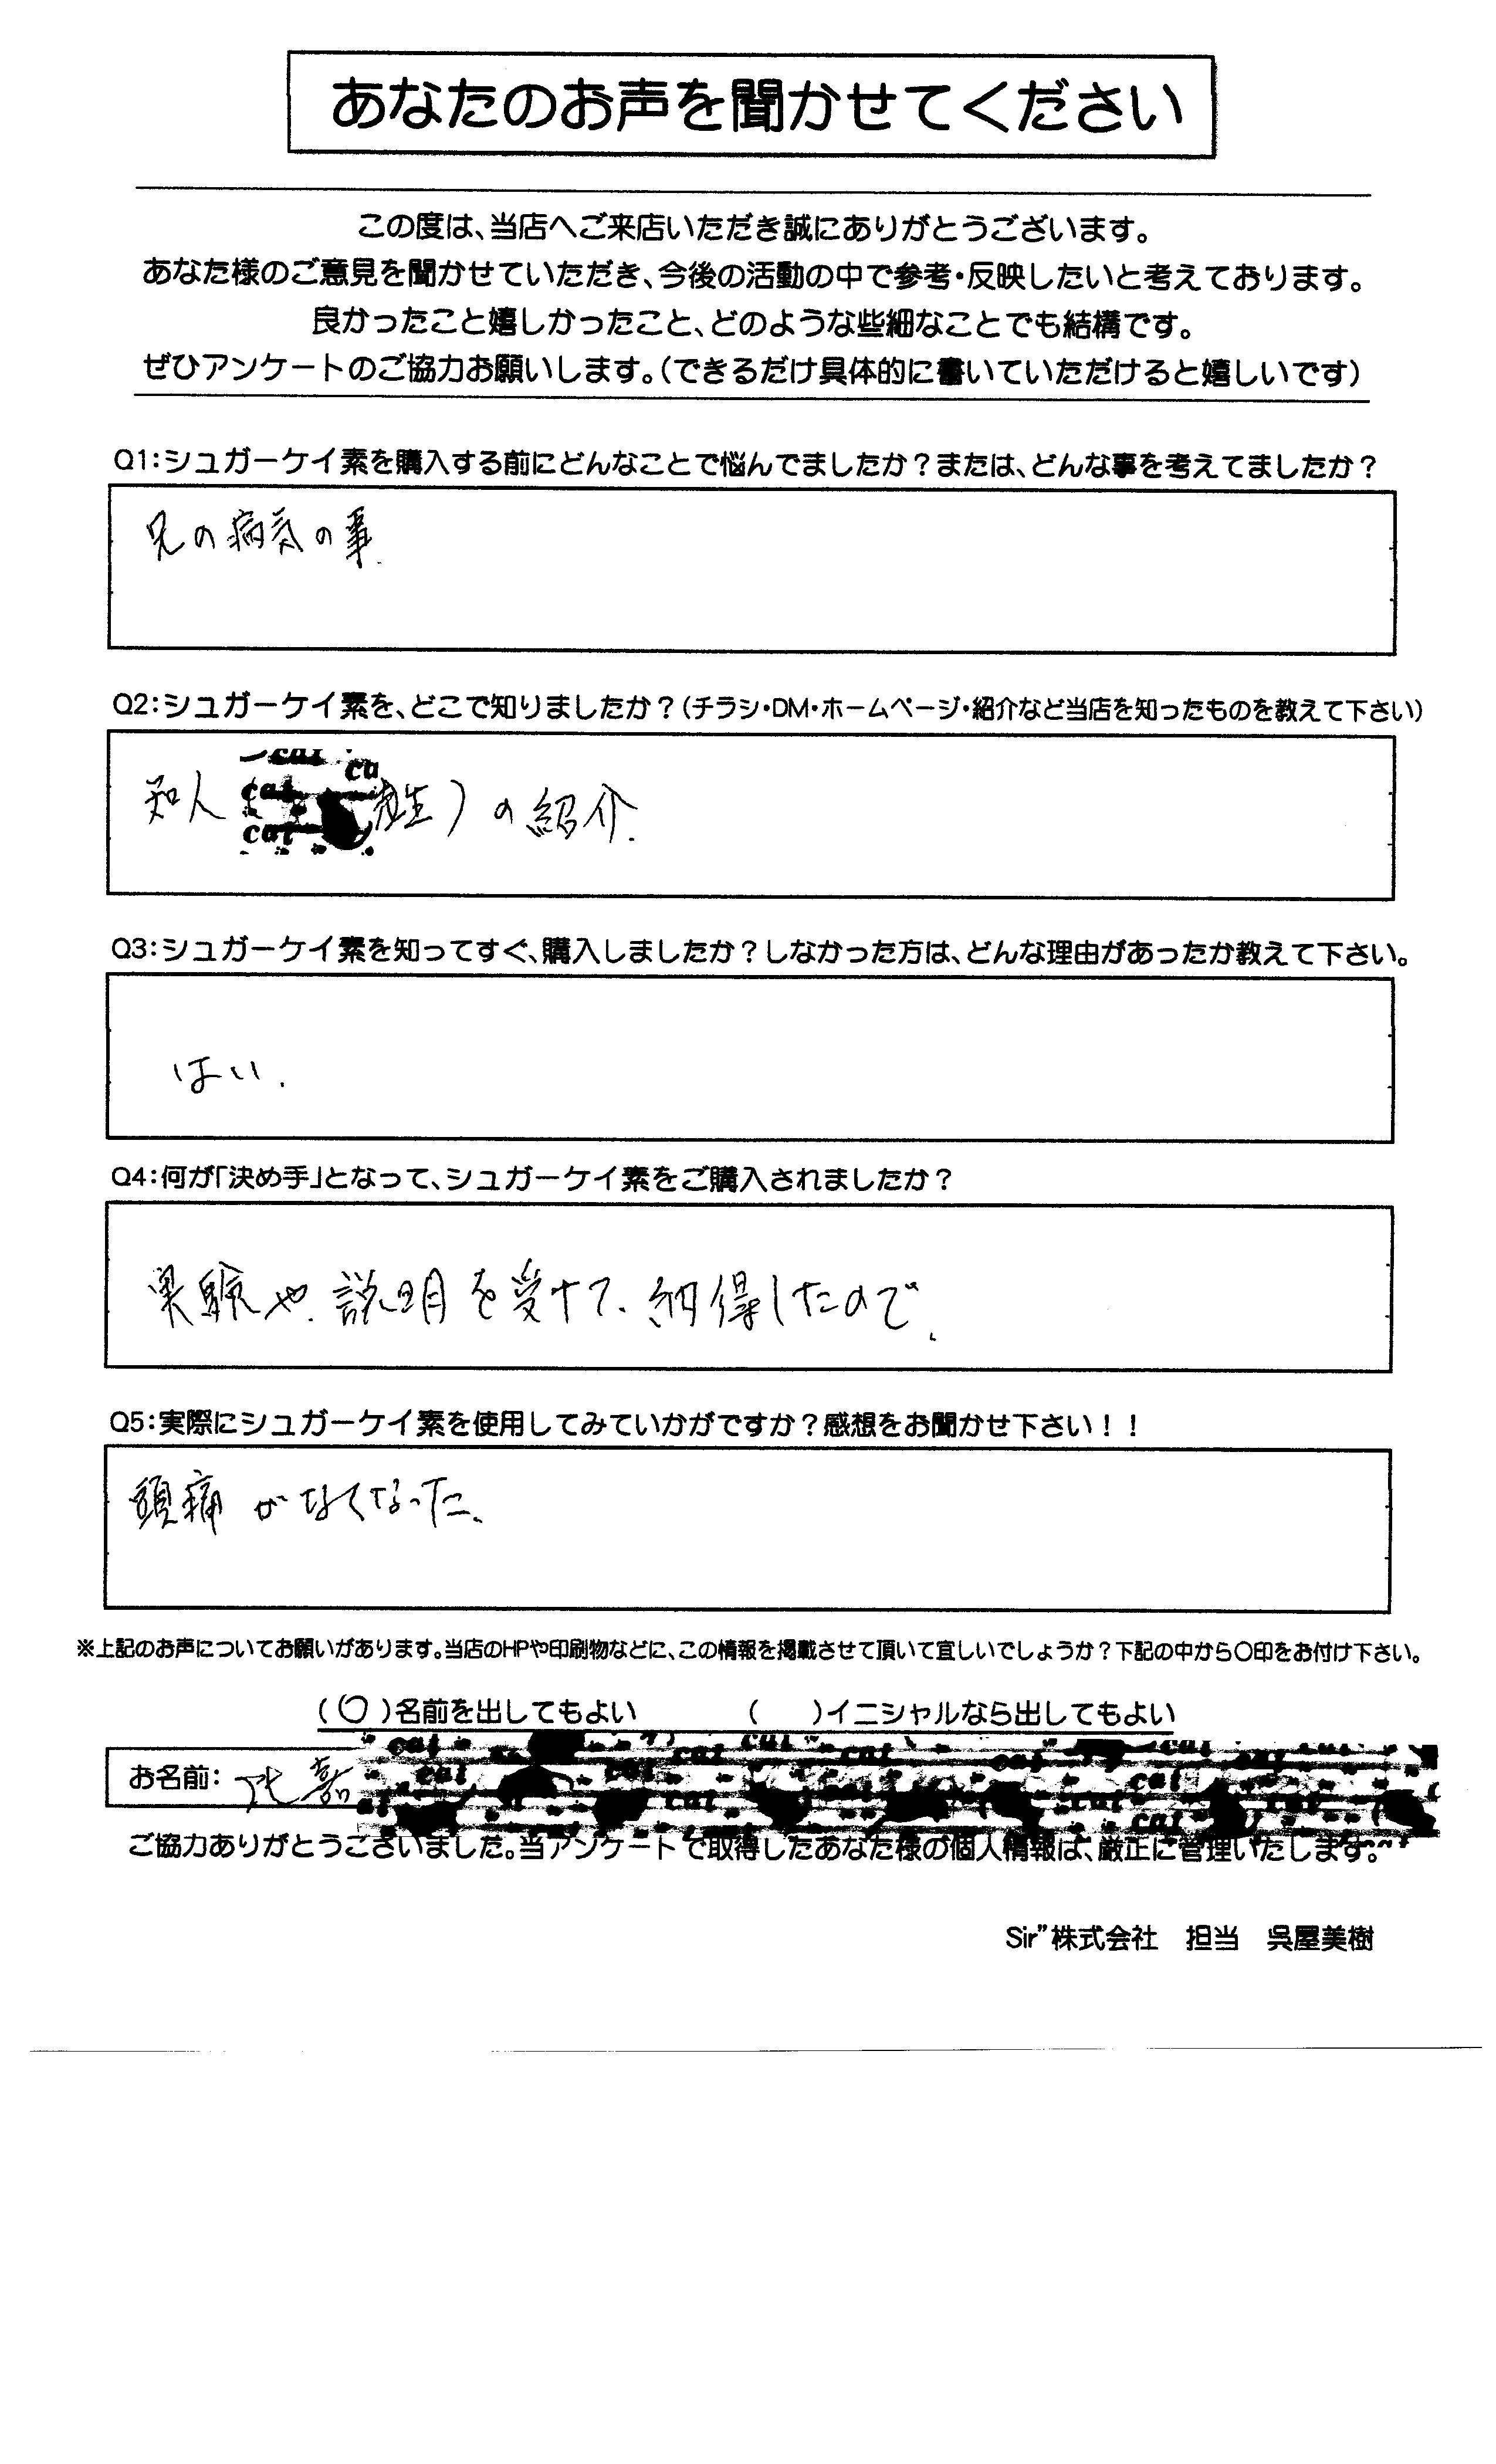 あなたのお声を聞かせてください
この度は、当店へご来店いただき誠にありがとうございます。
あなた様のご意見を聞かせていただき、今後の活動の中で参考・反映したいと考えております。
良かったこと嬉しかったこと、どのような些細なことでも結構です。
ぜひアンケートのご協力お願いします。(できるだけ具体的に書いていただけると嬉しいです)
Q1:シュガーケイ素を購入する前にどんなことで悩んでましたか?または、どんな事を考えてましたか?
兄の病気の事.
Q2:シュガーケイ素を、どこで知りましたか?(チラシ・DM・ホームページ・紹介など当店を知ったものを教えて下さい)
知人 生)の紹介.
Q3:シュガーケイ素を知ってすぐ、購入しましたか?しなかった方は、どんな理由があったか教えて下さい。
はい.
Q4:何が「決め手」となって、シュガーケイ素をご購入されましたか?
実験や、説明を受けて、納得したので、
Q5:実際にシュガーケイ素を使用してみていかがですか?感想をお聞かせ下さい!!
頭痛がなくなった、
※上記のお声についてお願いがあります。当店のHPや印刷物などに、この情報を掲載させて頂いて宜しいでしょうか?下記の中から〇印をお付け下さい。
(〇)名前を出してもよい ( )イニシャルなら出してもよい
お名前: 比嘉
ご協力ありがとうございました。当アンケートで取得したあなた様の個人情報は、厳正に管理いたします。
Sir”株式会社 担当 呉屋美樹